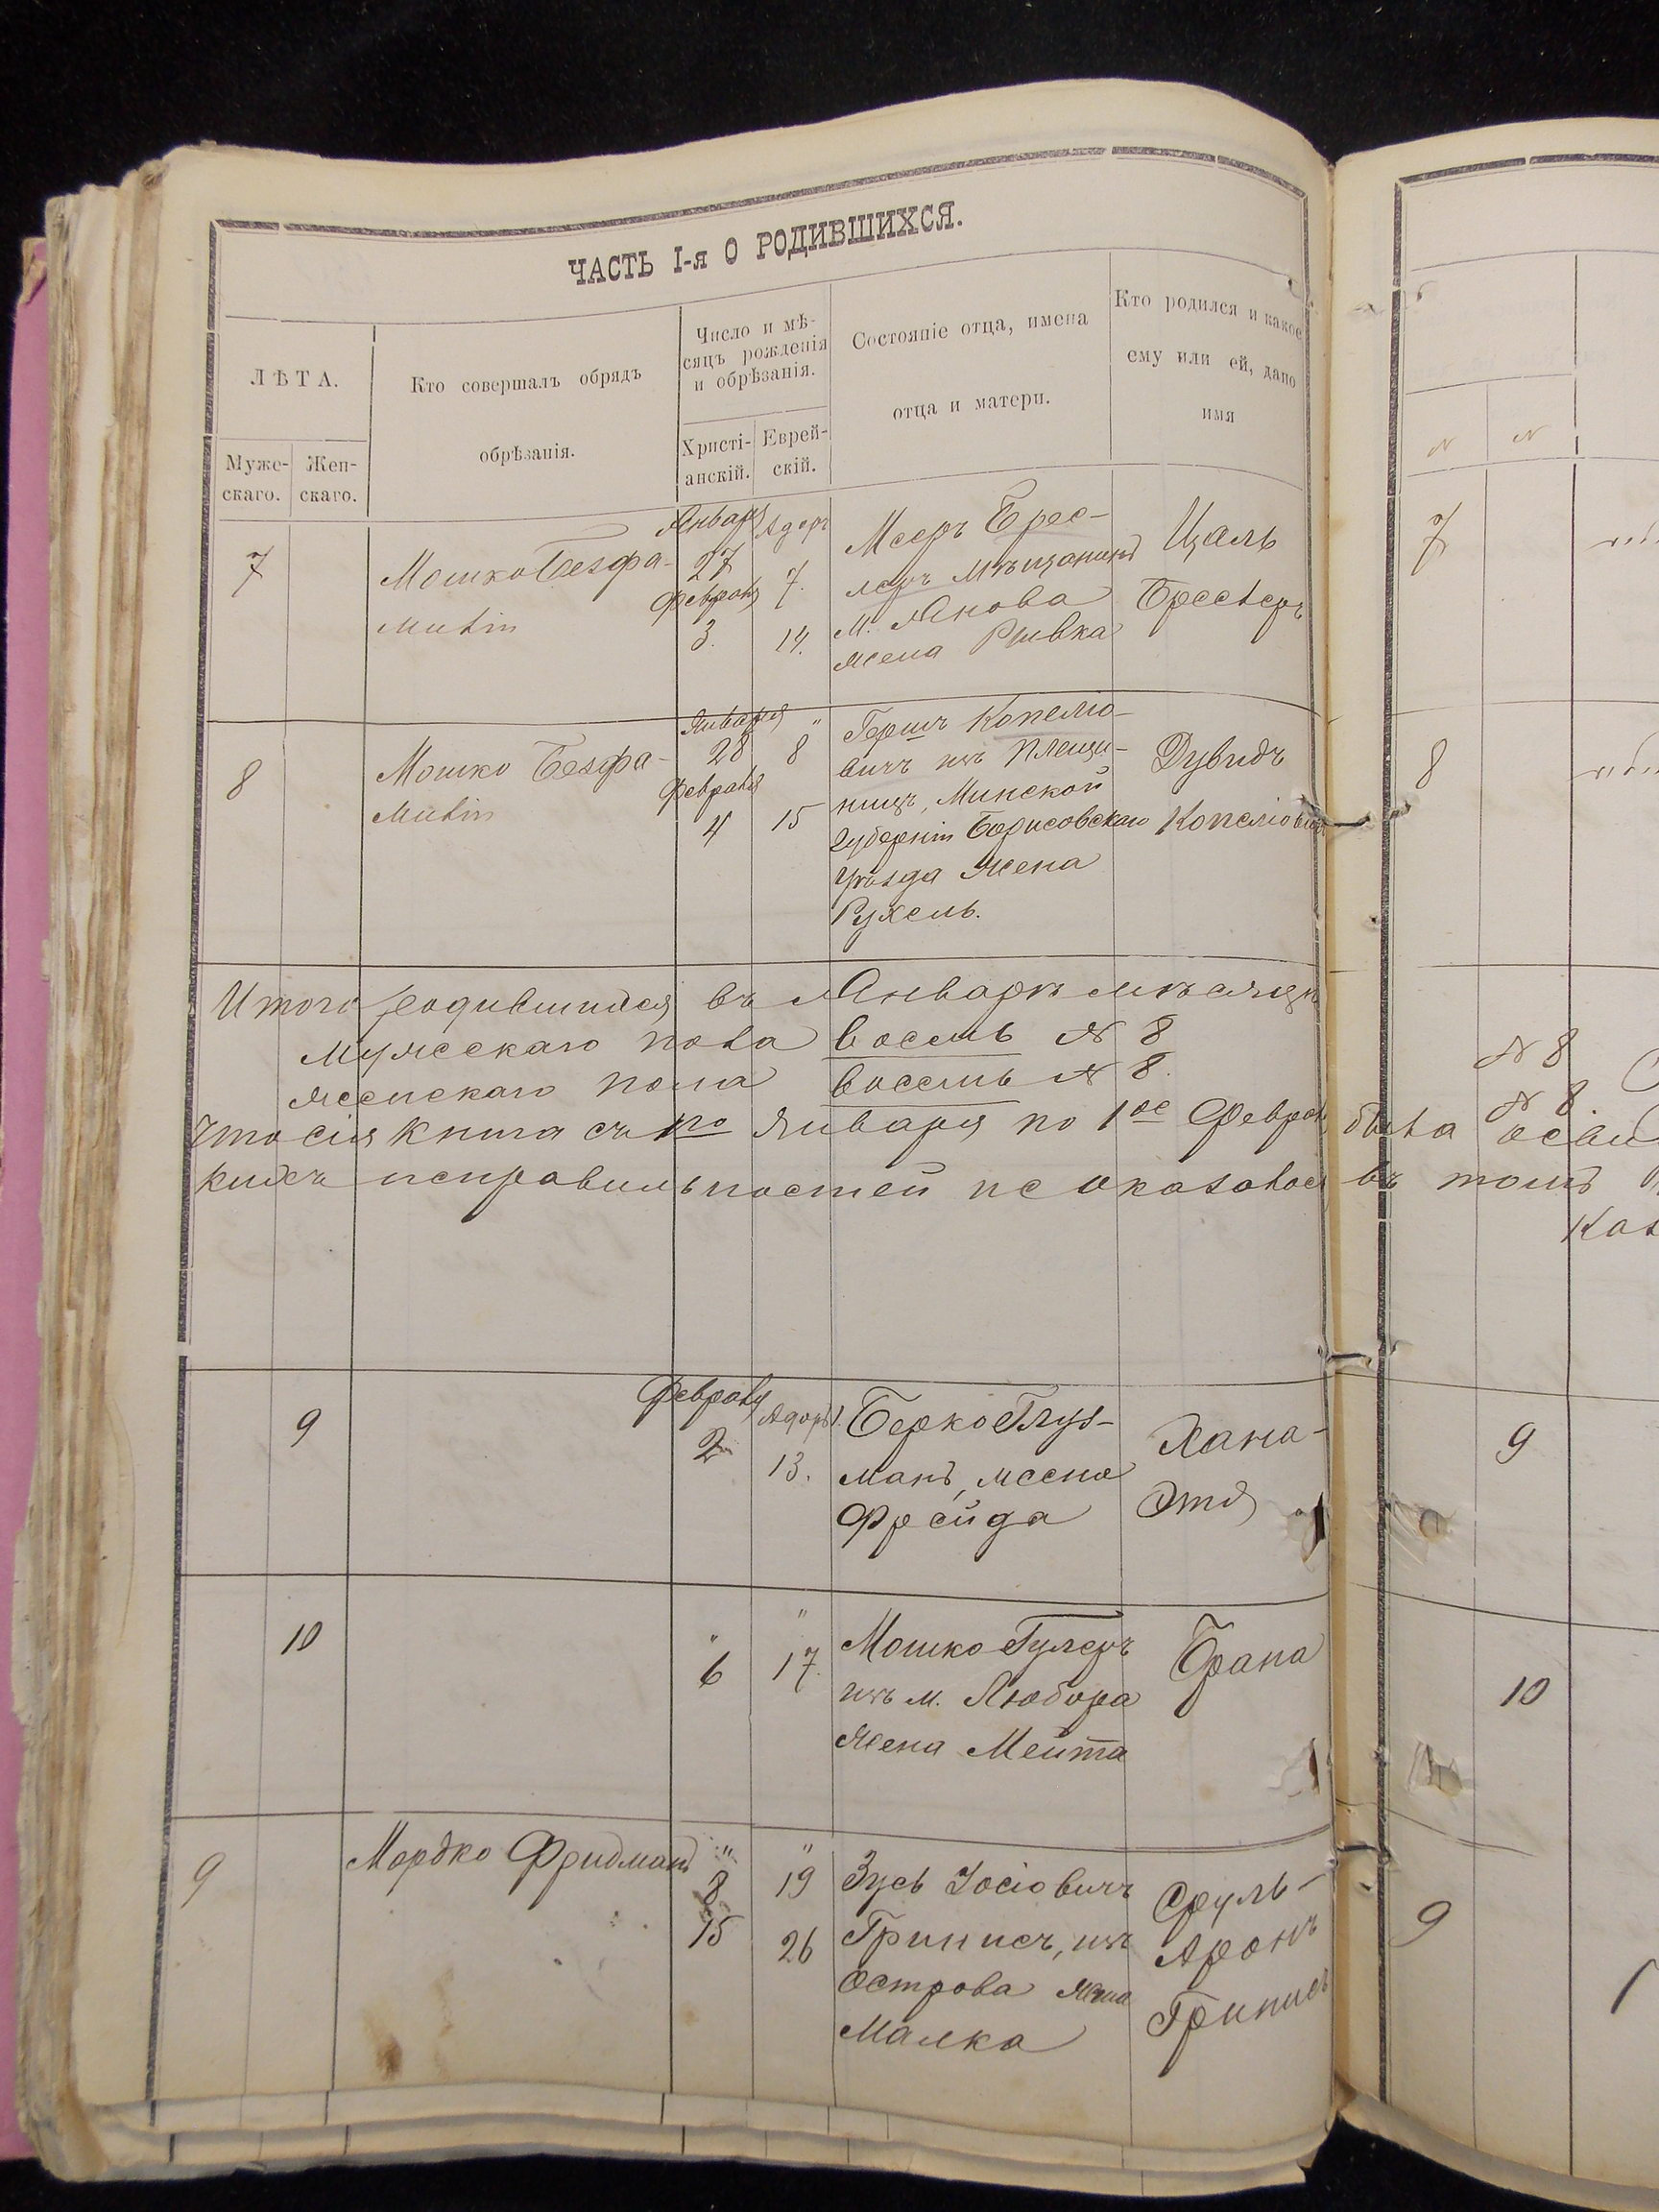 ЧАСТЬ I-я О РОДИВШИХСЯ.
ЛѢТА.
Муже-
скаго.
Жен-
скаго.
Кто совершалъ обрядъ
обрѣзанія.
Число и мѣ-
сяцъ рожденія
и обрѣзанія.
Христі-
анскій.
Еврей-
скій.
Состояніе отца, имена
отца и матери.
Кто родился и какое
ему или ей, дано
имя
7
Мошко Безфа-
милій
Январь
27
Февраля
3.
Адеръ
7.
14.
Мееръ Брес-
леръ Мѣщанинъ
м. Янова
жена Ривка
Цаль
Бреслеръ
7
8
Мошко Безфа-
милій
Января
28
Февраля
4
"
8
15
Гершъ Копелио-
вичъ изъ Плещи-
ницъ, Минской
Губерніи Борисовскаго
Уѣзда Жена
Рухель.
Дувидъ
Копеліович
8
Итого родившихся въ Январѣ мѣсяцѣ
Мужескаго пола восемь № 8
Женскаго пола восемь № 8.
Что сія книга съ 1го Января по 1ое Феврал была
кихъ исправильностей не оказалось въ томъ
№ 8
№ 8.
9
Февраля
2
Адоръ 1.
13.
Берко Глуз-
манъ, жена
Фрейда
Хана-
Этя
9
10
"
6
"
17.
Мошко Гулеръ
изъ м. Любора
Жена Мейта
Брана
10
9
Мордко Фридманъ
"
8
15
"
19
26
Зусь Іосіовичъ
Гринисъ, изъ
Острова жена
Малка
Сруль-
Аронъ
Гринисъ
9